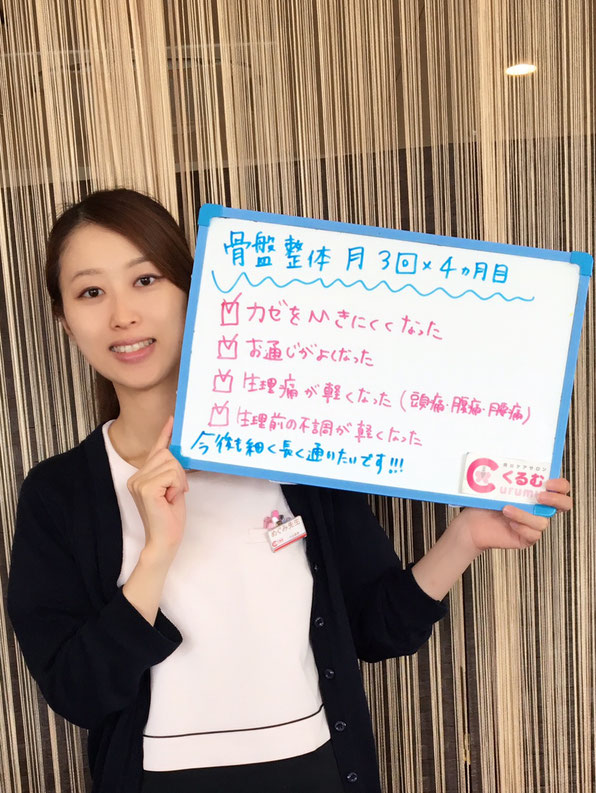 骨盤整体 月3回×4ヵ月目
カゼをひきにくくなった
お通じがよくなった
生理痛が軽くなった(頭痛・腹痛・腰痛)
生理前の不調が軽くなった
今後も細く長く通いたいです!!!
くるむ
urumu
めぐみ先生